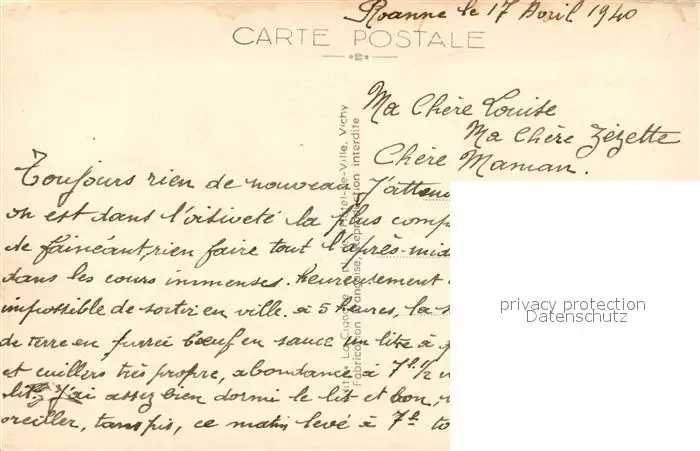 Roanne le 17 Avril 1940
CARTE POSTALE
Ma Chère Louise
Ma Chère Zézette
Chère Maman.
Toujours rien de nouveau J'atten
on est dans l'oisiveté la plus comp
de fainéant, rien faire tout l'après-mid
dans les cours immenses. heureusement
impossible de sortir en ville. à 5 heures, la s
de terre en purée bœuf en sauce un litre à
et cuillers très propre, abondance à 7h 1/2
lit. j'ai assez bien dormi le lit et bon,
oreiller, tanspis, ce matin levé à 7h to
La Cigogne, Hôtel-de-Ville, Vichy
Fabrication Française, Reproduction interdite
privacy protection
Datenschutz